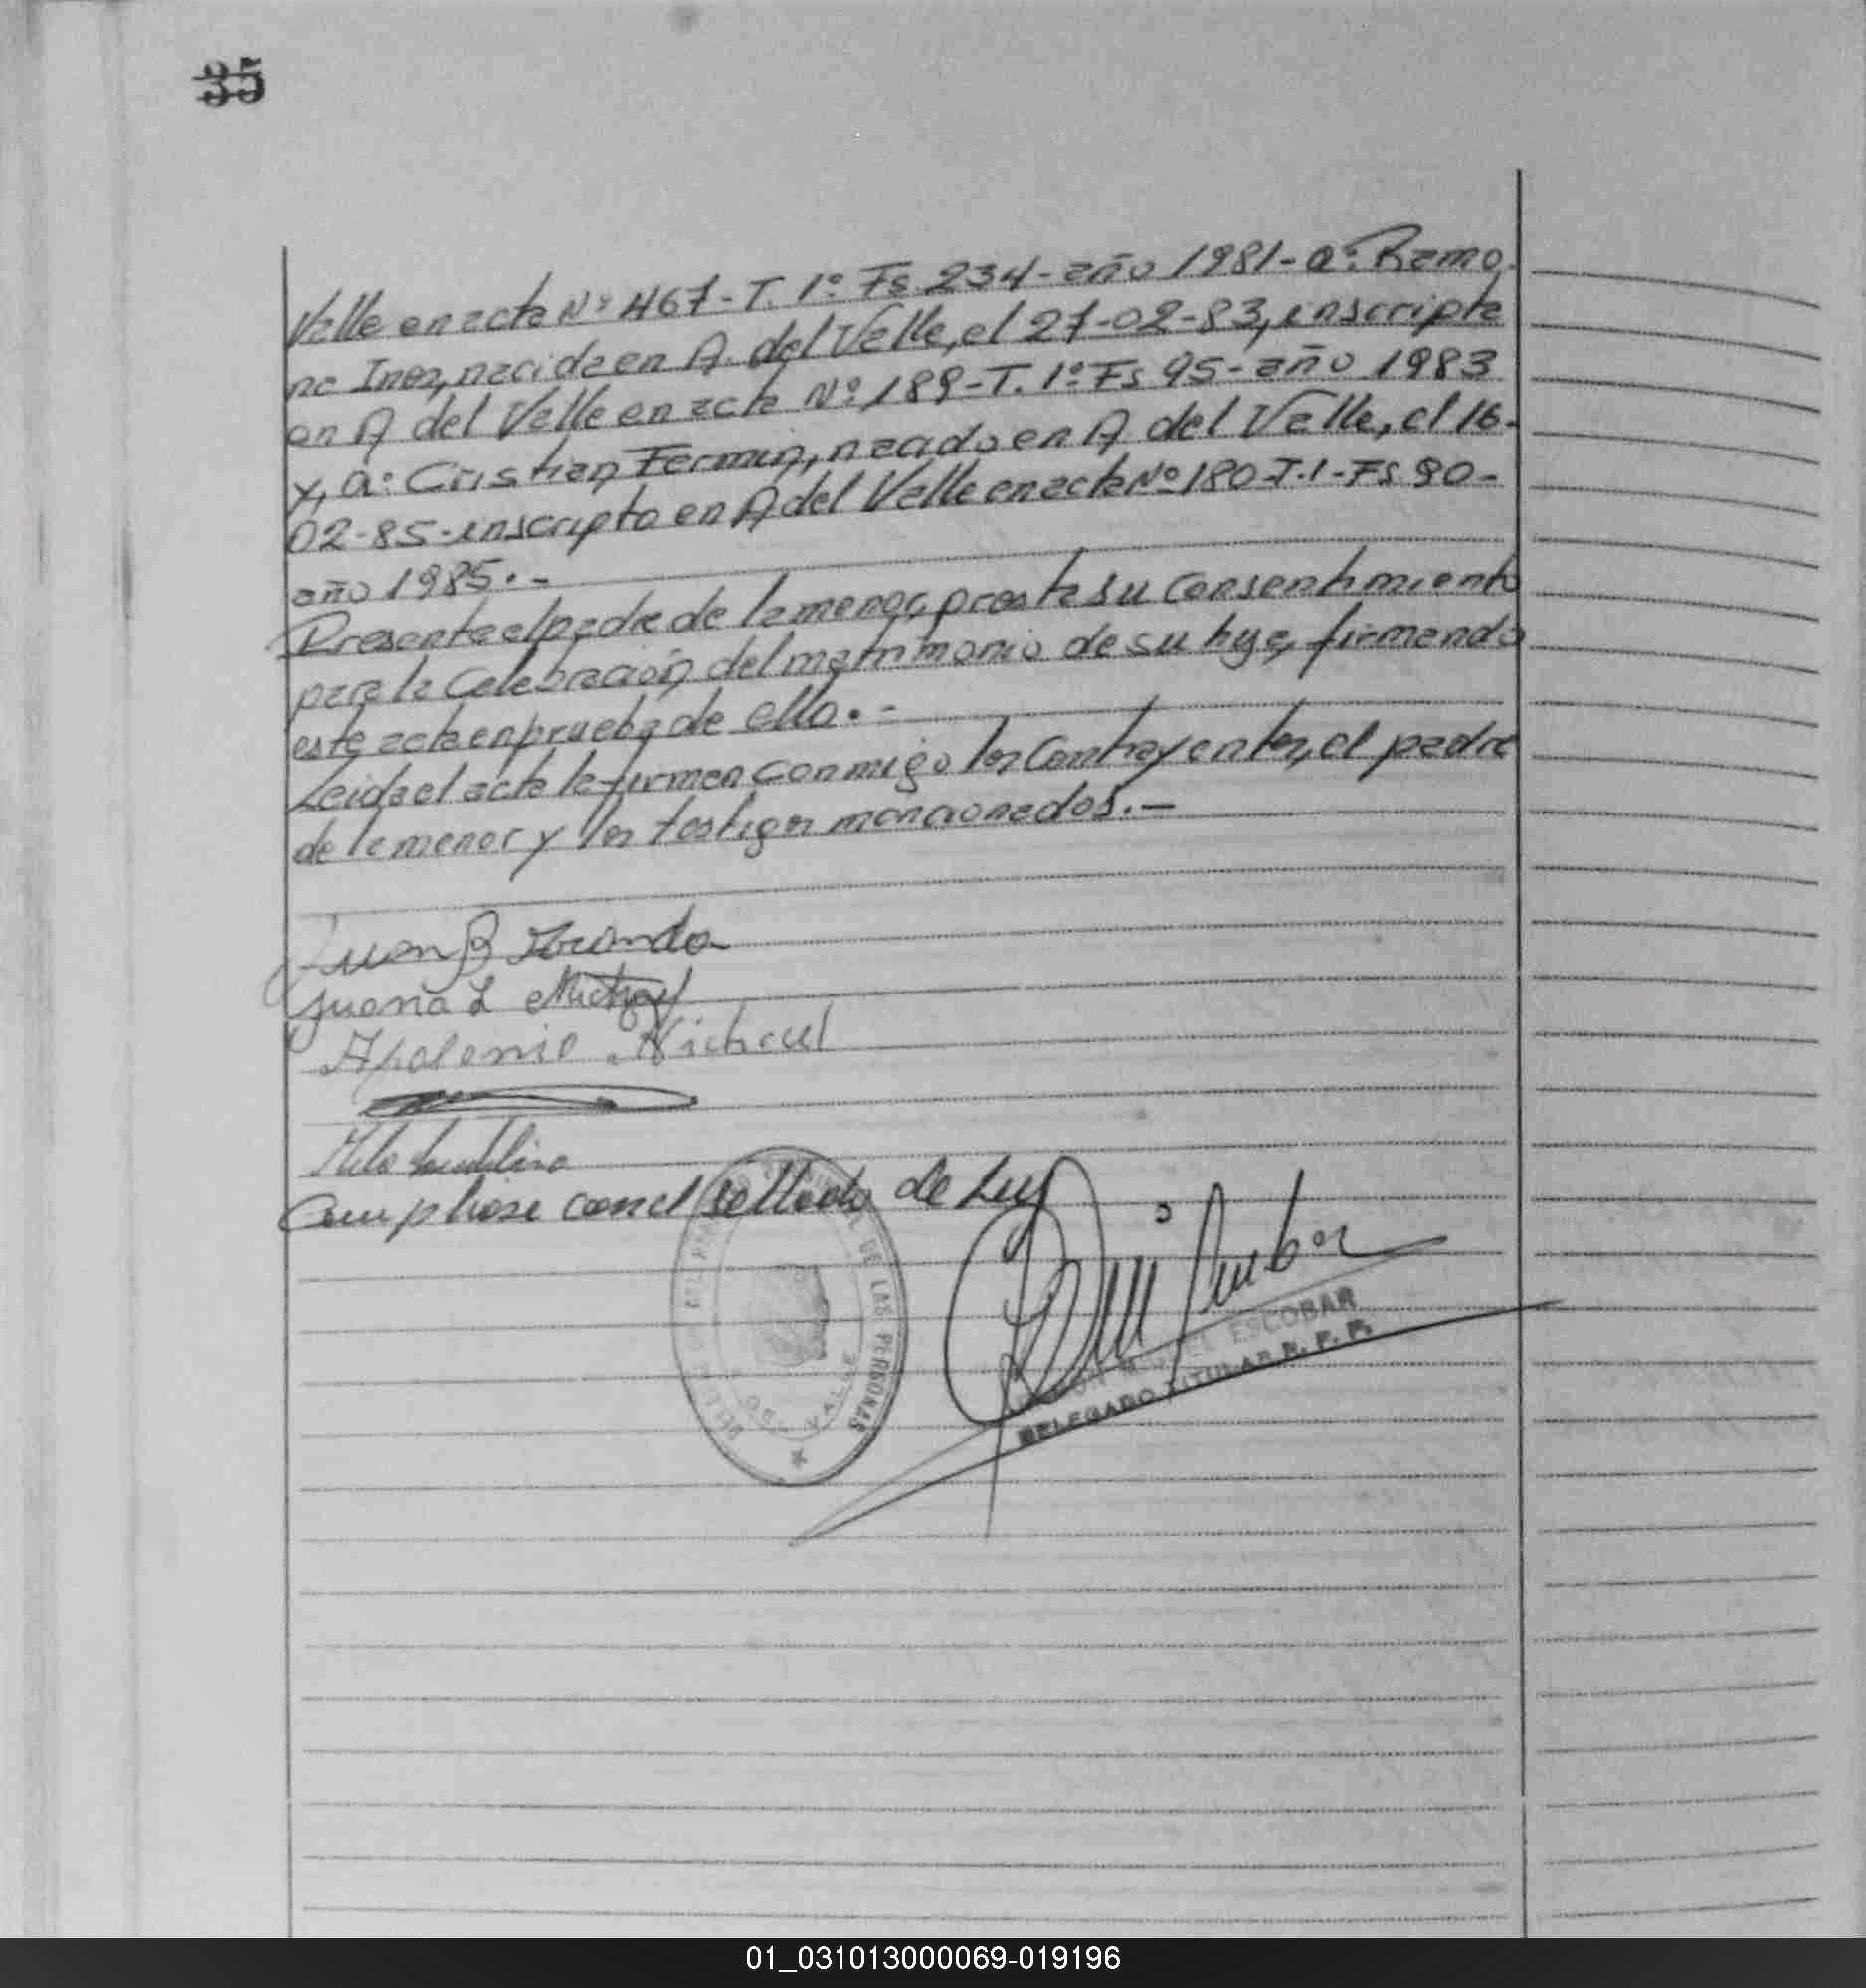 35
Valle en acta Nº 467-T. 1º Fs 234-año 1981-a: Ramo-
na Ines, nacida en A. del Valle, el 27-02-83, inscripta
en A del Valle en acta Nº 189-T. 1º Fs 95-año 1983
y, a: Cristian Fermin, nacido en A del Valle, el 16-
02-85-inscripto en A del Valle en acta Nº 180-T.1-Fs 90-
año 1985.-
Presente el padre de la menor, presta su consentimiento
para la celebración del matrimonio de su hija, firmando
este acta en prueba de ello.-
Leida el acta la firman conmigo los contrayentes, el padre
de la menor y los testigos mencionados.-
Juan B
Juana L
Apolonio
Cumpliose con el sellado de Ley
DE LAS PERSONAS
DEL VALLE
ESCOBAR
DELEGADO TITULAR R. P. P.
01_031013000069-019196